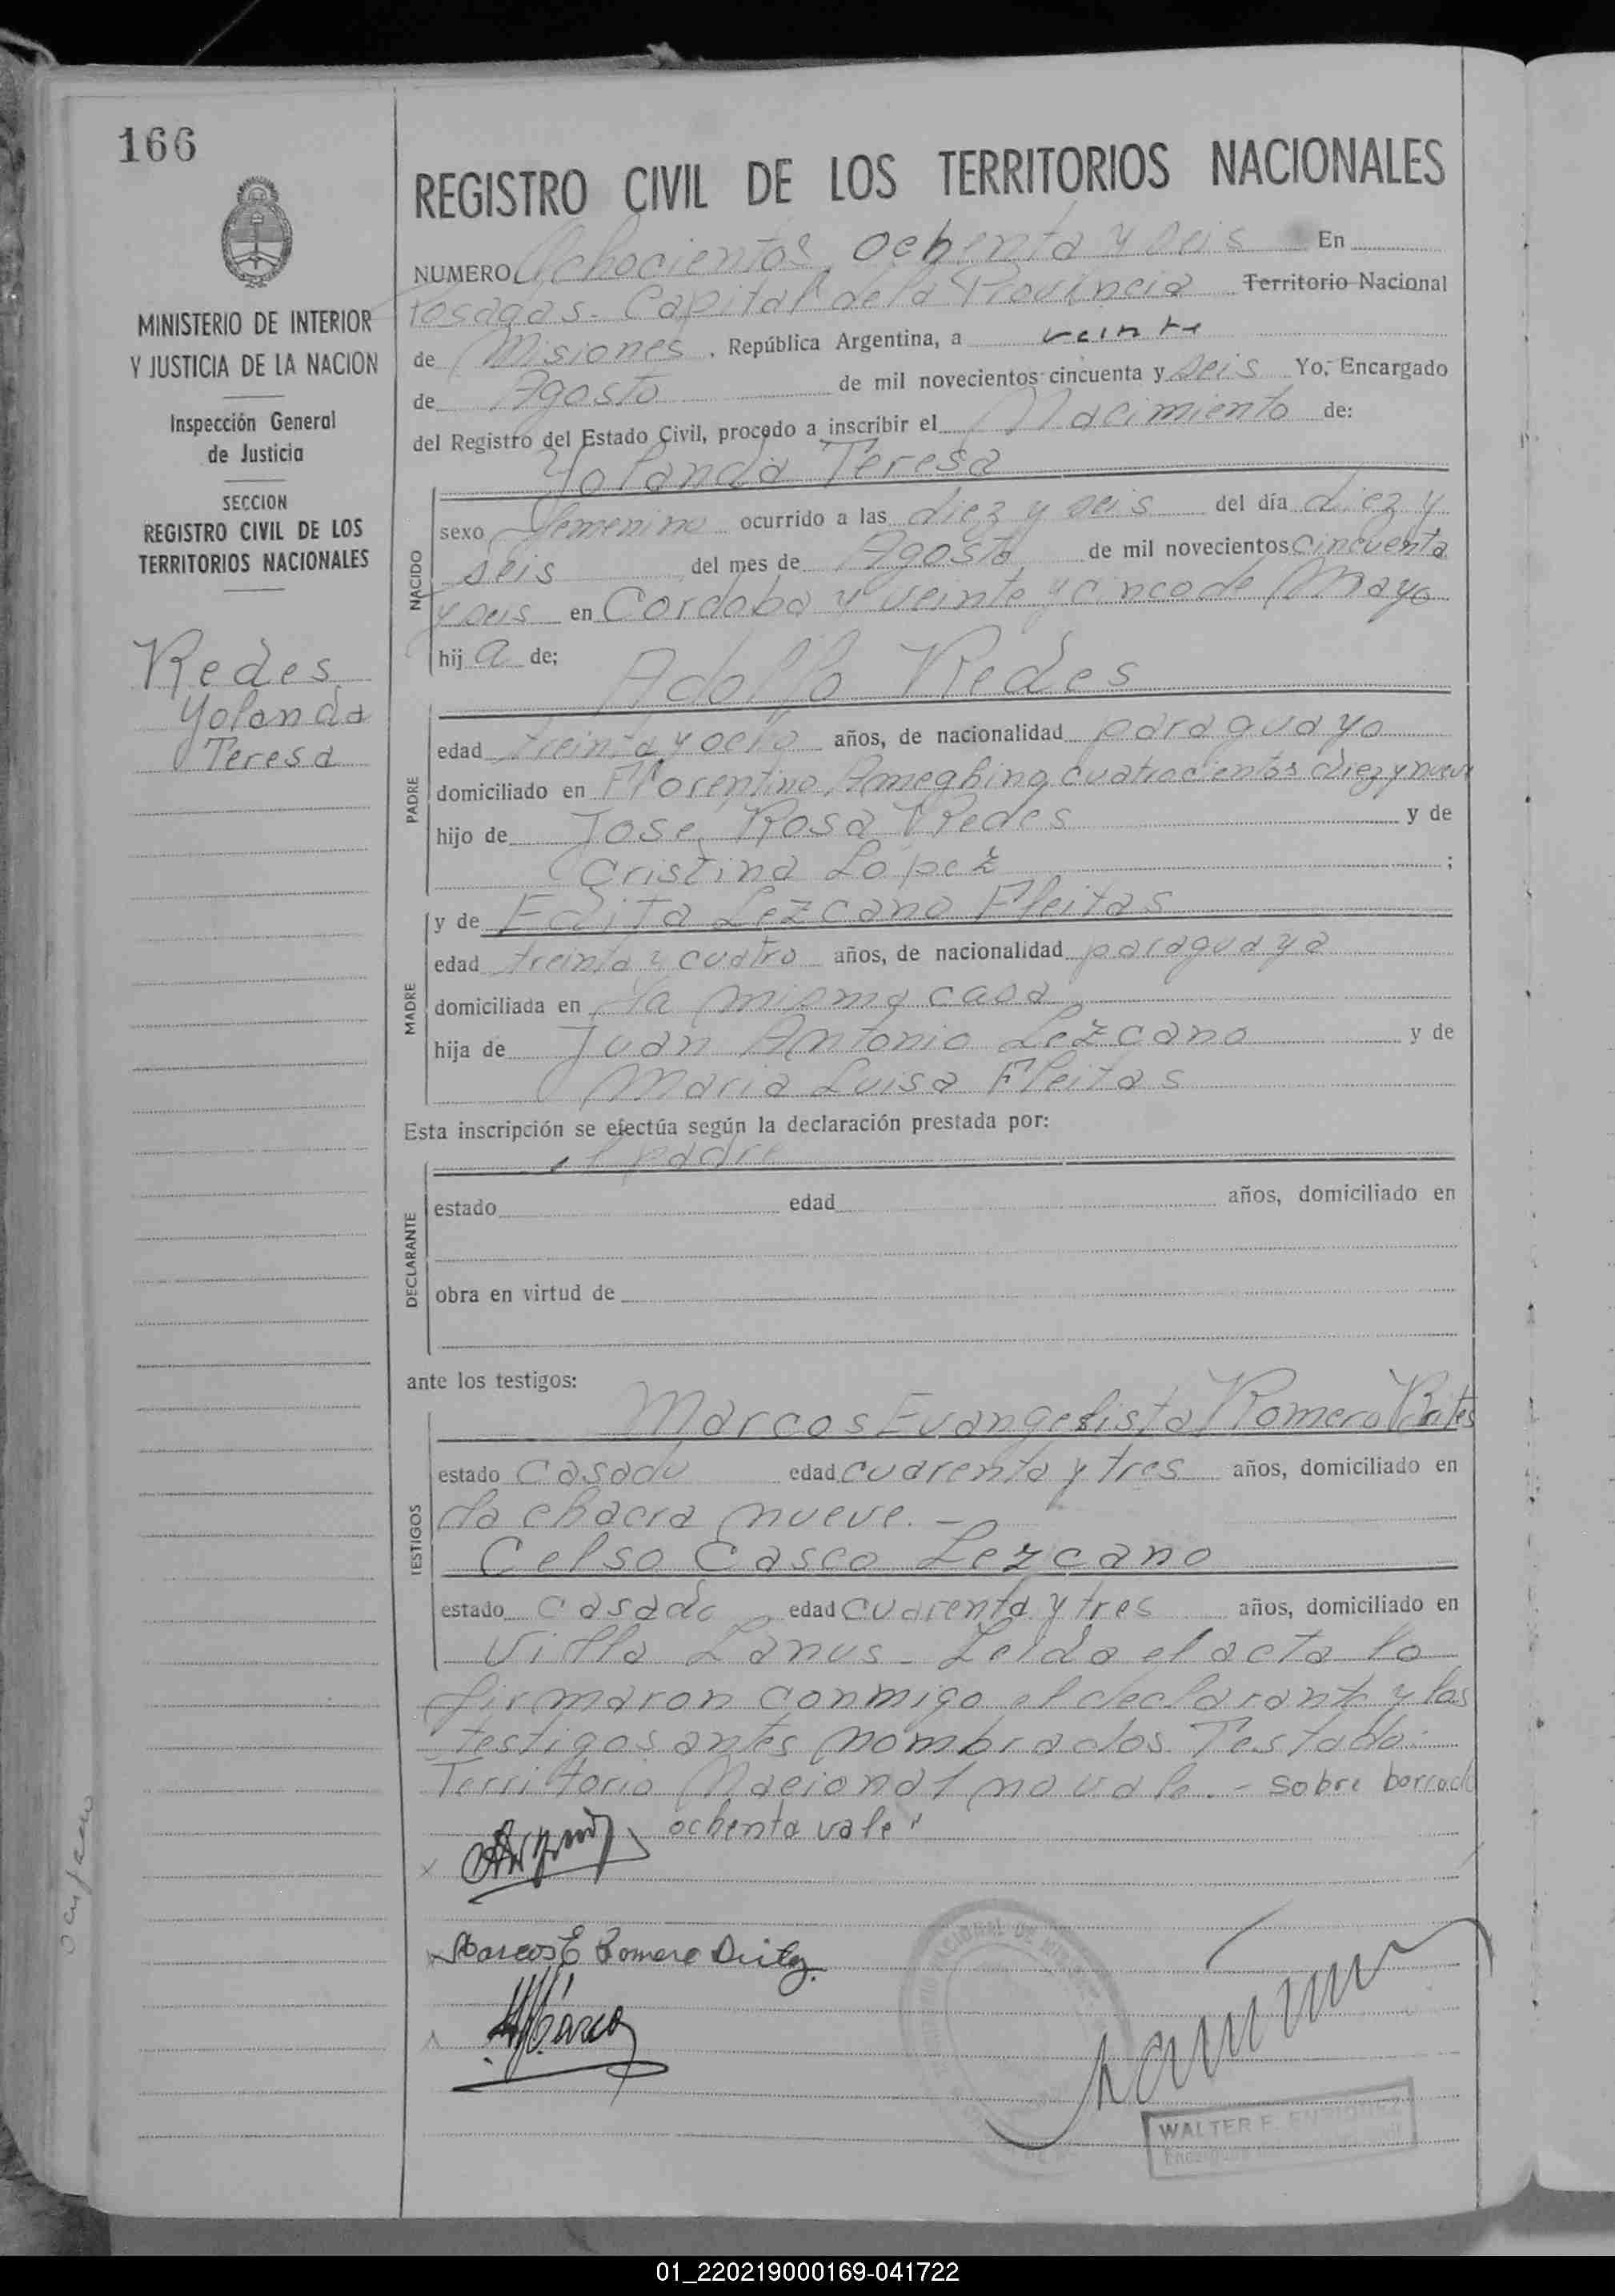 166
REGISTRO CIVIL DE LOS TERRITORIOS NACIONALES
NUMERO Ochocientos ochenta y seis En
Posadas. Capital de la Provincia Territorio Nacional
de Misiones. República Argentina, a veinte
de Agosto de mil novecientos cincuenta y seis Yo, Encargado
del Registro del Estado Civil, procedo a inscribir el Nacimiento de:
Yolanda Teresa
NACIDO
sexo femenino ocurrido a las diez y seis del día diez y
seis del mes de Agosto de mil novecientos cincuenta
y seis en Cordoba y veinte y cinco de Mayo
hija de;
Adolfo Redes
PADRE
edad treinta y ocho años, de nacionalidad paraguayo
domiciliado en Florentino Ameghino cuatrocientos diez y nueve
hijo de José Rosa Redes y de
Cristina Lopez ;
MADRE
y de Edita Lezcano Fleitas
edad treinta y cuatro años, de nacionalidad paraguaya
domiciliada en la misma casa
hija de Juan Antonio Lezcano y de
Maria Luisa Fleitas
Esta inscripción se efectúa según la declaración prestada por:
el padre
DECLARANTE
estado edad años, domiciliado en
obra en virtud de
ante los testigos:
TESTIGOS
Marcos Evangelista Romero
estado casado edad cuarenta y tres años, domiciliado en
la chacra nueve. -
Celso Casco Lezcano
estado casado edad cuarenta y tres años, domiciliado en
Villa Lanus - Leida el acta la
firmaron conmigo el declarante y los
testigos antes nombrados. Testado:
Territorio Nacional no vale. - sobre borrado
ochenta vale
Marcos E Romero
WALTER F. ENRIQUEZ
MINISTERIO DE INTERIOR
Y JUSTICIA DE LA NACION
Inspección General
de Justicia
SECCION
REGISTRO CIVIL DE LOS
TERRITORIOS NACIONALES
Redes
Yolanda
Teresa
01_220219000169-041722